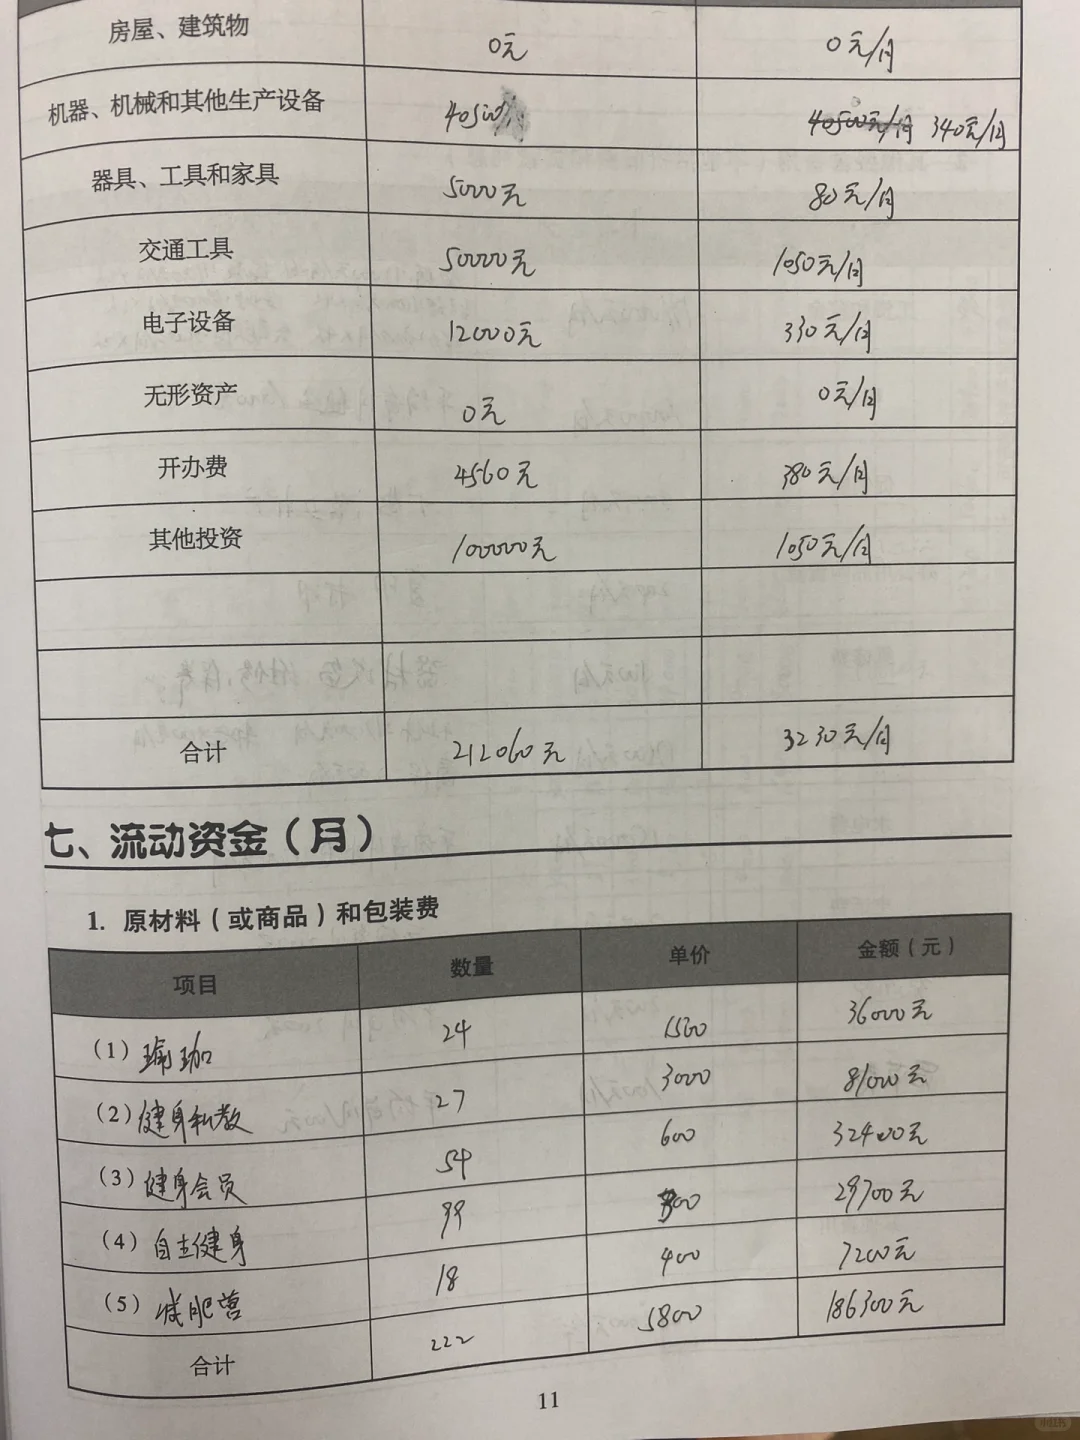 房屋、建筑物 0元 0元/月
机器、机械和其他生产设备 40500 40500元/月 340元/月
器具、工具和家具 5000元 80元/月
交通工具 50000元 1050元/月
电子设备 12000元 330元/月
无形资产 0元 0元/月
开办费 4560元 380元/月
其他投资 100000元 1050元/月
合计 212060元 3230元/月
七、流动资金(月)
1. 原材料(或商品)和包装费
项目 数量 单价 金额(元)
(1) 瑜珈 24 1500 36000元
(2) 健身私教 27 3000 81000元
(3) 健身会员 54 600 32400元
(4) 自主健身 99 300 29700元
(5) 减肥营 18 400 7200元
合计 222 5800 186300元
11